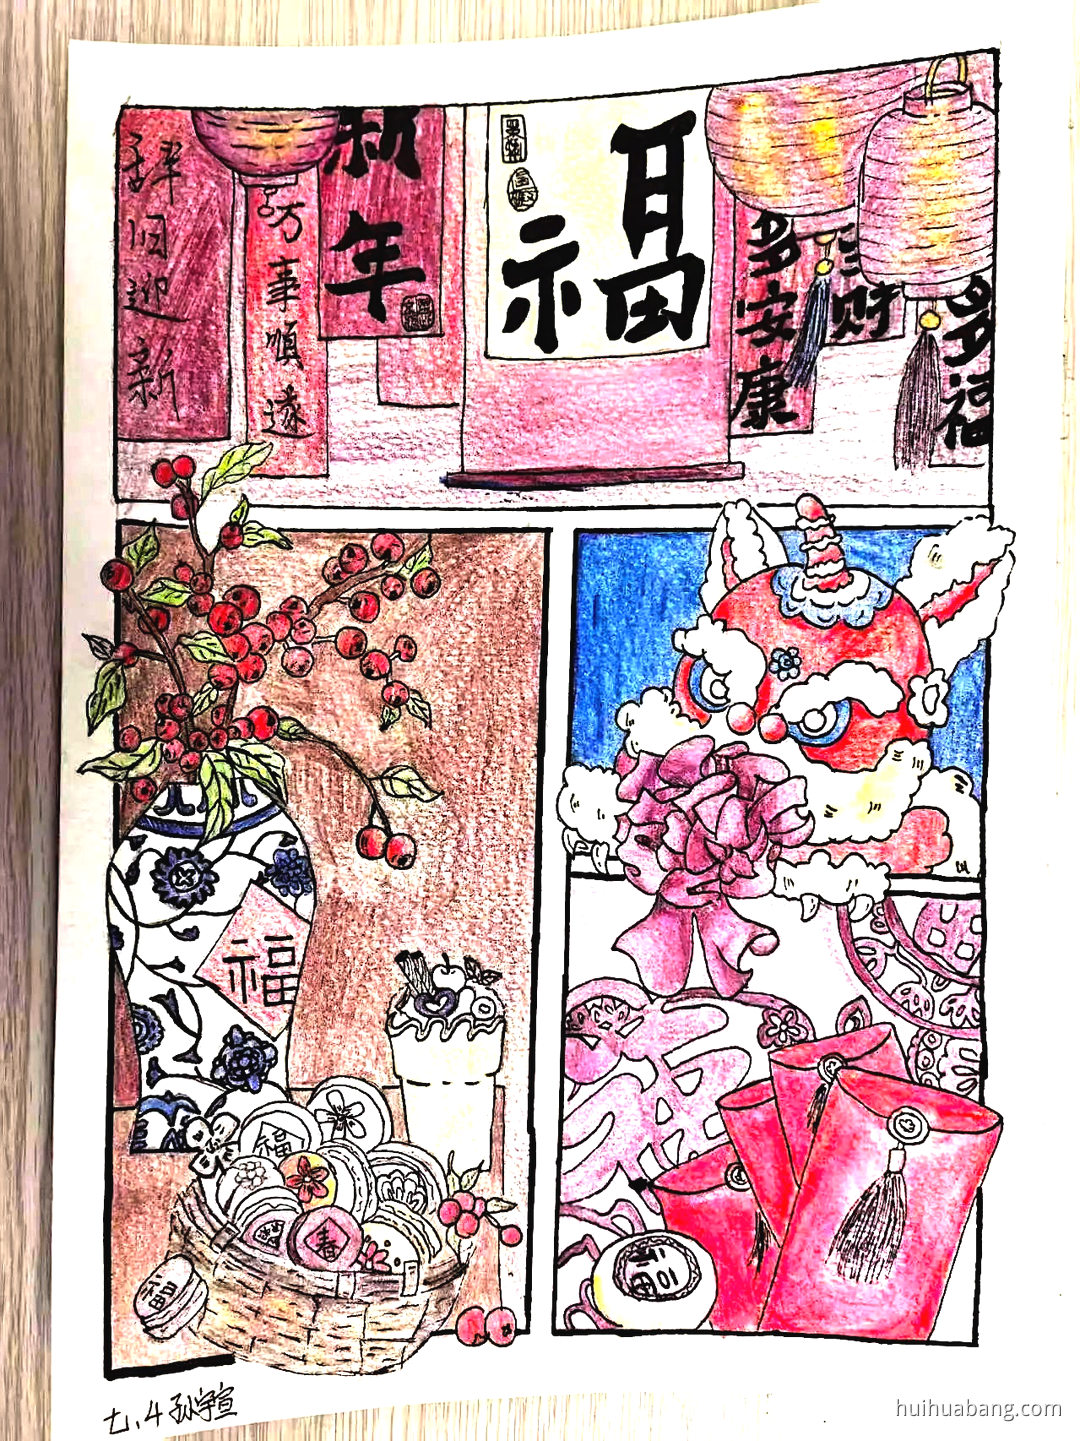 辞旧迎新
万事順遂
新年
福
多安康
财
多福
福
福
春
福
七.4 孙宇宣
huihuabang.com